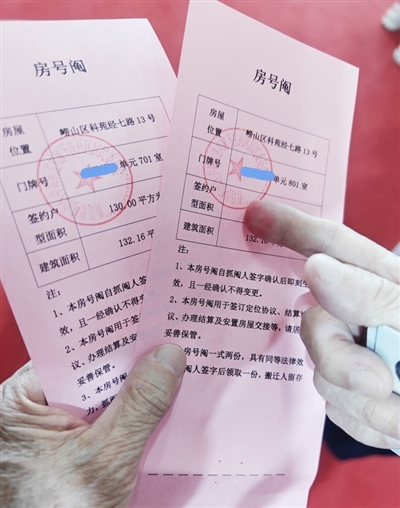 房号阄
房屋
位置
崂山区科苑经七路13号
门牌号
单元701室
签约户
型面积
130.00平方米
建筑面积
132.16平
注:
1、本房号阄自抓阄人签
效,且一经确认不得变更。
2、本房号阄用于签
议、办理结算及安
妥善保管。
3、本房号
力,抓
房号阄
房屋
位置
崂山区科苑经七路13号
门牌号
单元801室
签约户
型面积
建筑面积
132.16平
注:
1、本房号阄自抓阄人签字确认后即刻生
效,且一经确认不得变更。
2、本房号阄用于签订定位协议、结算协
议、办理结算及安置房屋交接等,请
妥善保管。
房号阄一式两份,具有同等法律效
阄人签字后领取一份,搬迁人留存